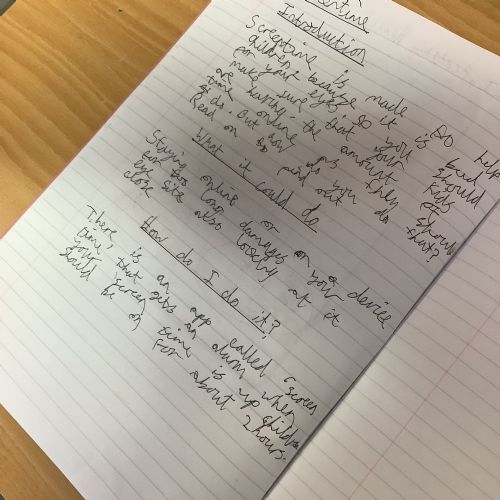 Introduction
Screentime is made to help
children because it is bad
for your eyes. So you should
make sure that your kids
are having the amount of
time online they should
get do. But how do you do that?
Read on to find out
What it could do
Staying online or on your device
for too long damages your
eye site also looking at it
close
How do I do it?
There is an app called "screen
time, that gets an alarm when
your screen time is up children
should be on for about
2 hours.